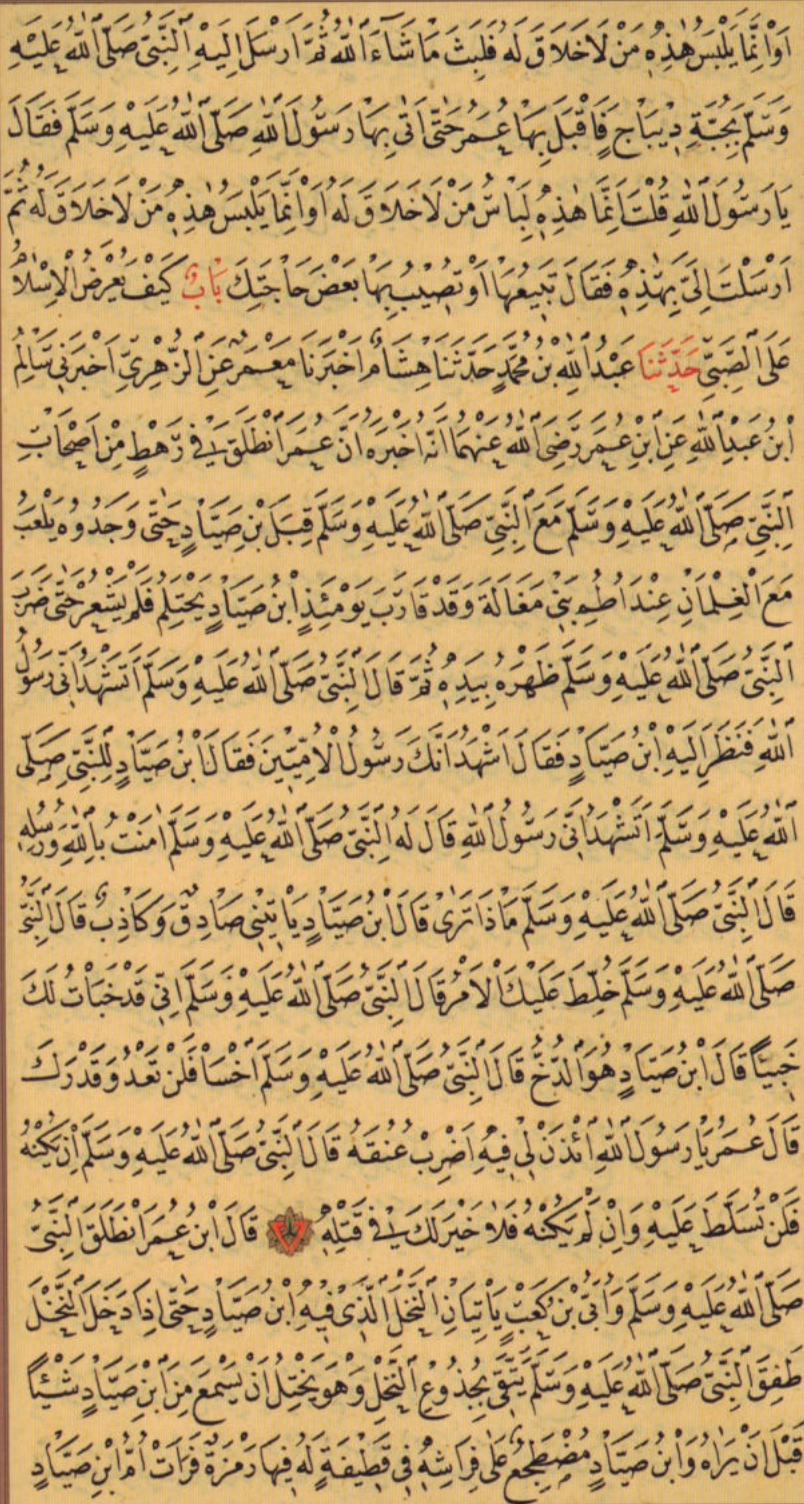 اَوْ اِنَّمَا يَلْبَسُ هٰذِهِ مَنْ لَا خَلَاقَ لَهُ فَلَبِثَ مَا شَآءَ اللهُ ثُمَّ اَرْسَلَ اِلَيْهِ النَّبِيُّ صَلَّى اللهُ عَلَيْهِ
وَسَلَّمَ بِجُبَّةِ دِيْبَاجٍ فَاَقْبَلَ بِهَا عُمَرُ حَتّٰى اَتٰى بِهَا رَسُولَ اللهِ صَلَّى اللهُ عَلَيْهِ وَسَلَّمَ فَقَالَ
يَا رَسُولَ اللهِ قُلْتَ اِنَّمَا هٰذِهِ لِبَاسُ مَنْ لَا خَلَاقَ لَهُ اَوْ اِنَّمَا يَلْبَسُ هٰذِهِ مَنْ لَا خَلَاقَ لَهُ ثُمَّ
اَرْسَلْتَ اِلَيَّ بِهٰذِهِ فَقَالَ تَبِيعُهَا اَوْ تُصِيْبُ بِهَا بَعْضَ حَاجَتِكَ بَابٌ كَيْفَ يُعْرَضُ الْاِسْلَامُ
عَلَى الصَّبِيِّ حَدَّثَنَا عَبْدُ اللهِ بْنُ مُحَمَّدٍ حَدَّثَنَا هِشَامٌ اَخْبَرَنَا مَعْمَرٌ عَنِ الزُّهْرِيِّ اَخْبَرَنِي سَالِمُ
ابْنُ عَبْدِ اللهِ عَنِ ابْنِ عُمَرَ رَضِيَ اللهُ عَنْهُمَا اَنَّهُ اَخْبَرَهُ اَنَّ عُمَرَ انْطَلَقَ فِي رَهْطٍ مِنْ اَصْحَابِ
النَّبِيِّ صَلَّى اللهُ عَلَيْهِ وَسَلَّمَ مَعَ النَّبِيِّ صَلَّى اللهُ عَلَيْهِ وَسَلَّمَ قِبَلَ بْنِ صَيَّادٍ حَتّٰى وَجَدُوهُ يَلْعَبُ
مَعَ الْغِلْمَانِ عِنْدَ اُطُمِ بَنِي مَغَالَةَ وَقَدْ قَارَبَ يَوْمَئِذٍ ابْنُ صَيَّادٍ يَحْتَلِمُ فَلَمْ يَشْعُرْ حَتّٰى ضَرَبَ
النَّبِيُّ صَلَّى اللهُ عَلَيْهِ وَسَلَّمَ ظَهْرَهُ بِيَدِهِ ثُمَّ قَالَ النَّبِيُّ صَلَّى اللهُ عَلَيْهِ وَسَلَّمَ اَتَشْهَدُ اَنِّي رَسُولُ
اللهِ فَنَظَرَ اِلَيْهِ ابْنُ صَيَّادٍ فَقَالَ اَشْهَدُ اَنَّكَ رَسُولُ الْاُمِّيِّينَ فَقَالَ ابْنُ صَيَّادٍ لِلنَّبِيِّ صَلَّى
اللهُ عَلَيْهِ وَسَلَّمَ اَتَشْهَدُ اَنِّي رَسُولُ اللهِ قَالَ لَهُ النَّبِيُّ صَلَّى اللهُ عَلَيْهِ وَسَلَّمَ اٰمَنْتُ بِاللهِ وَرُسُلِهِ
قَالَ النَّبِيُّ صَلَّى اللهُ عَلَيْهِ وَسَلَّمَ مَاذَا تَرٰى قَالَ ابْنُ صَيَّادٍ يَأْتِيْنِي صَادِقٌ وَكَاذِبٌ قَالَ النَّبِيُّ
صَلَّى اللهُ عَلَيْهِ وَسَلَّمَ خُلِطَ عَلَيْكَ الْاَمْرُ قَالَ النَّبِيُّ صَلَّى اللهُ عَلَيْهِ وَسَلَّمَ اِنِّي قَدْ خَبَأْتُ لَكَ
خَبِيْئًا قَالَ ابْنُ صَيَّادٍ هُوَ الدُّخُّ قَالَ النَّبِيُّ صَلَّى اللهُ عَلَيْهِ وَسَلَّمَ اخْسَأْ فَلَنْ تَعْدُوَ قَدْرَكَ
قَالَ عُمَرُ يَا رَسُولَ اللهِ ائْذَنْ لِي فِيْهِ اَضْرِبْ عُنُقَهُ قَالَ النَّبِيُّ صَلَّى اللهُ عَلَيْهِ وَسَلَّمَ اِنْ يَكُنْهُ
فَلَنْ تُسَلَّطَ عَلَيْهِ وَاِنْ لَمْ يَكُنْهُ فَلَا خَيْرَ لَكَ فِي قَتْلِهِ قَالَ ابْنُ عُمَرَ انْطَلَقَ النَّبِيُّ
صَلَّى اللهُ عَلَيْهِ وَسَلَّمَ وَاُبَيُّ بْنُ كَعْبٍ يَأْتِيَانِ النَّخْلَ الَّذِي فِيْهِ ابْنُ صَيَّادٍ حَتّٰى اِذَا دَخَلَ النَّخْلَ
طَفِقَ النَّبِيُّ صَلَّى اللهُ عَلَيْهِ وَسَلَّمَ يَتَّقِي بِجُذُوعِ النَّخْلِ وَهُوَ يَخْتِلُ اَنْ يَسْمَعَ مِنَ ابْنِ صَيَّادٍ شَيْئًا
قَبْلَ اَنْ يَرَاهُ وَابْنُ صَيَّادٍ مُضْطَجِعٌ عَلٰى فِرَاشِهِ فِي قَطِيْفَةٍ لَهُ فِيهَا رَمْزَةٌ فَرَاَتْ اُمُّ ابْنِ صَيَّادٍ